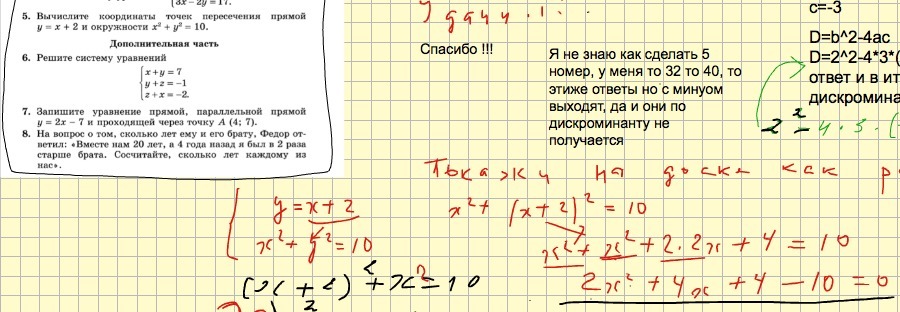 3x − 2y = 17.
5. Вычислите координаты точек пересечения прямой
y = x + 2 и окружности x² + y² = 10.
Дополнительная часть
6. Решите систему уравнений
x + y = 7
y + z = −1
z + x = −2.
7. Запишите уравнение прямой, параллельной прямой
y = 2x − 7 и проходящей через точку A (4; 7).
8. На вопрос о том, сколько лет ему и его брату, Федор от-
ветил: «Вместе нам 20 лет, а 4 года назад я был в 2 раза
старше брата. Сосчитайте, сколько лет каждому из
нас».
Удачи . ! . .
Спасибо !!!
Я не знаю как сделать 5
номер, у меня то 32 то 40, то
этиже ответы но с минуом
выходят, да и они по
дискроминанту не
получается
c=-3
D=b^2-4ac
D=2^2-4*3*(
ответ и в ит
дискромина
2² - 4 · 3 · (
на доске как р
y = x + 2
x² + y² = 10
x² + (x + 2)² = 10
x² + x² + 2·2x + 4 = 10
2x² + 4x + 4 − 10 = 0
(x + 2)² + x² = 10